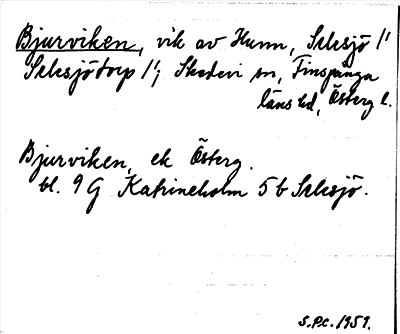 Bjurviken, vik av Hunn, Selesjö 1/1
Selesjötorp 1/1, Skedevi sn, Finspånga
läns hd, Österg l.
Bjurviken, ek Österg.
bl. 9 G Katrineholm 5 b Selesjö.
S.P.C. 1959.